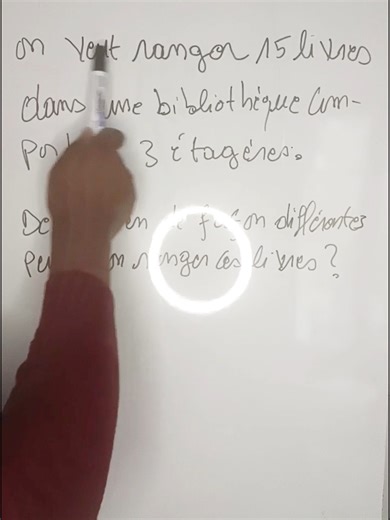 on veut ranger 15 livres
dans une bibliothèque com-
3 étagères.
De façon différentes
ranger ces livres ?